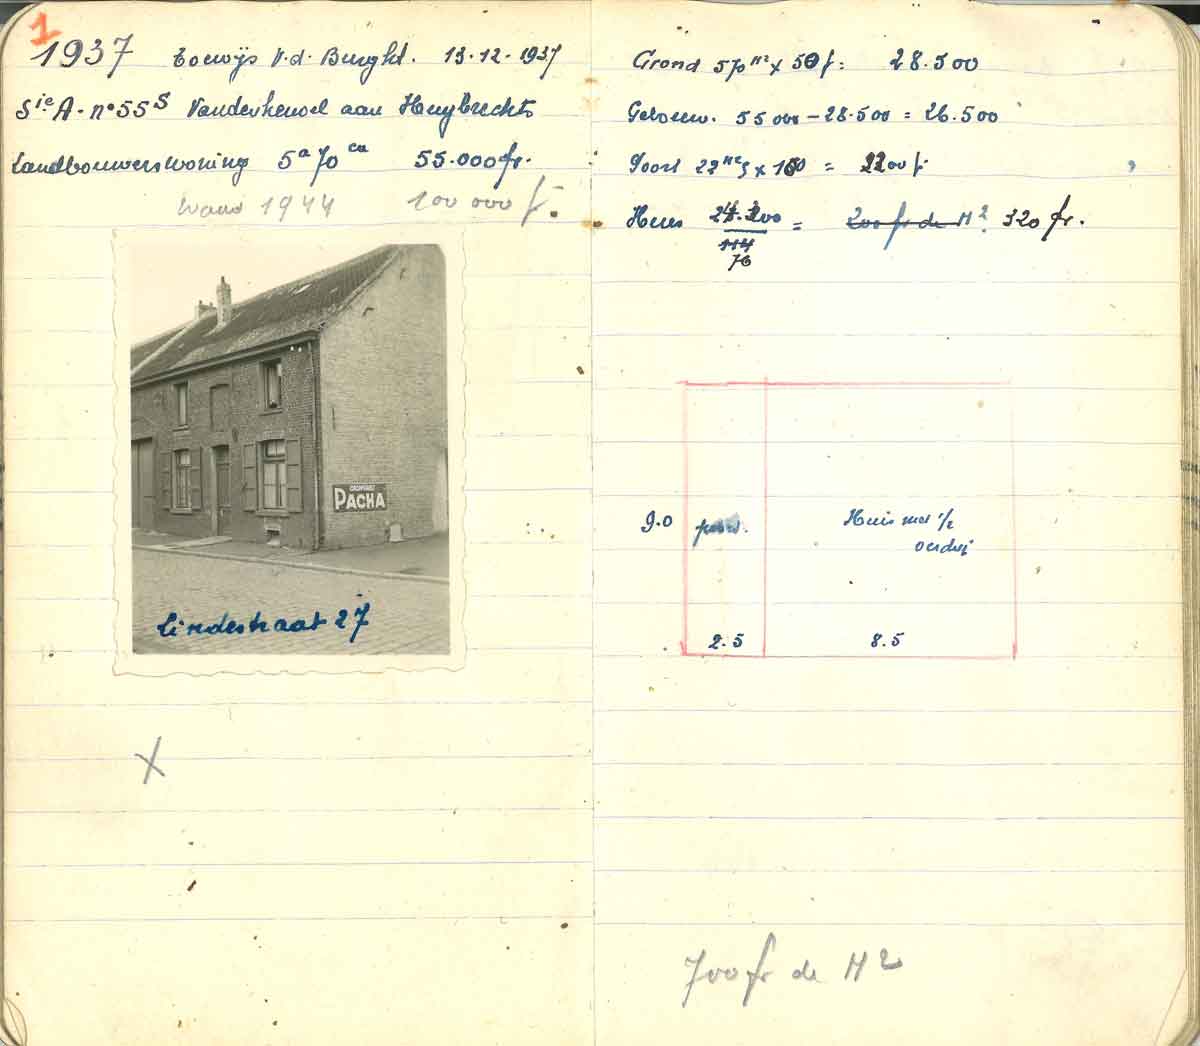 1
1937 Toewijs V.d. Burght. 13-12-1937
Sie A - n° 55 S Vanderheuvel aan Huybrechts
Landbouwerswoning 5a 70 ca 55.000 fr.
waard 1944 100 000 f.
PACHA
Lindestraat 27
X
Grond 570 M² x 50 f = 28.500
Gebouw. 55 000 - 28.500 = 26.500
Poort 22 M² x 100 = 2200 f
Huis 24.300 = 200 fr de M². 320 fr.
114
76
9.0 poort. Huis met 1/2
2.5 8.5
700 fr de M²